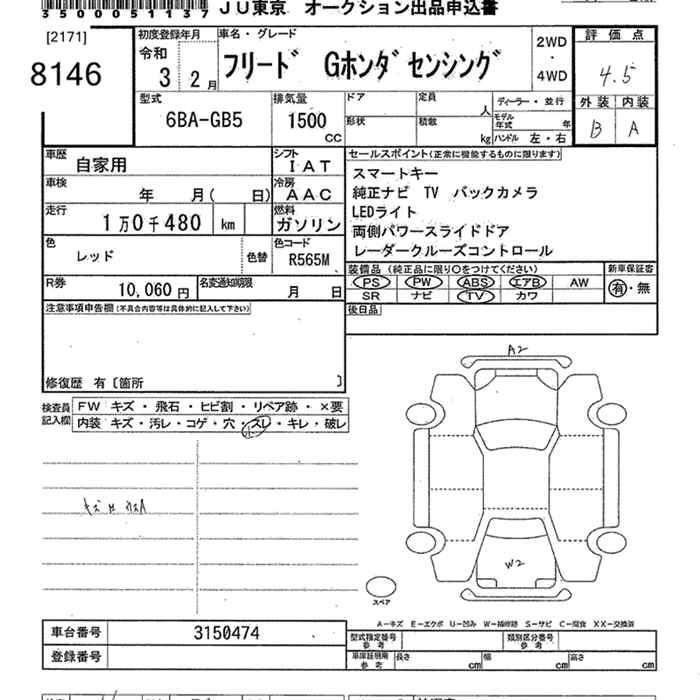 3500051137
JU東京 オークション出品申込書
[2171]
8146
初度登録年月
令和
3 2月
車名・グレード
フリード Gホンダセンシング
2WD
・
4WD
評価点
4.5
外装 内装
B A
型式
6BA-GB5
排気量
1500
CC
ドア
定員
人
形状
積載
kg
ディーラー・並行
モデル
年式
年
ハンドル 左・右
車歴
自家用
シフト
IAT
車検
年 月( 日)
冷房
AAC
走行
1万0千480 km
燃料
ガソリン
色
レッド
色替
色コード
R565M
R券
10,060円
名変通知期限
月 日
セールスポイント(正常に機能するものに限ります)
スマートキー
純正ナビ TV バックカメラ
LEDライト
両側パワースライドドア
レーダークルーズコントロール
装備品 (純正品に限り○をつけてください)
PS PW ABS エアB AW
SR ナビ TV カワ
新車保証書
有・無
後日品
注意事項申告欄(不具合内容等は具体的に記入して下さい)
修復歴 有〔箇所 〕
検査員
記入欄
FW キズ・飛石・ヒビ割・リペア跡・×要
内装 キズ・汚レ・コゲ・穴・スレ・キレ・破レ
小
A2
W2
スペア
A-キズ E-エクボ U-凹み W-補修跡 S-サビ C-腐食 XX-交換済
車台番号 3150474
登録番号
型式指定番号
参考
類別区分番号
参考
車庫証明用
参考
長さ cm 幅 cm 高さ cm